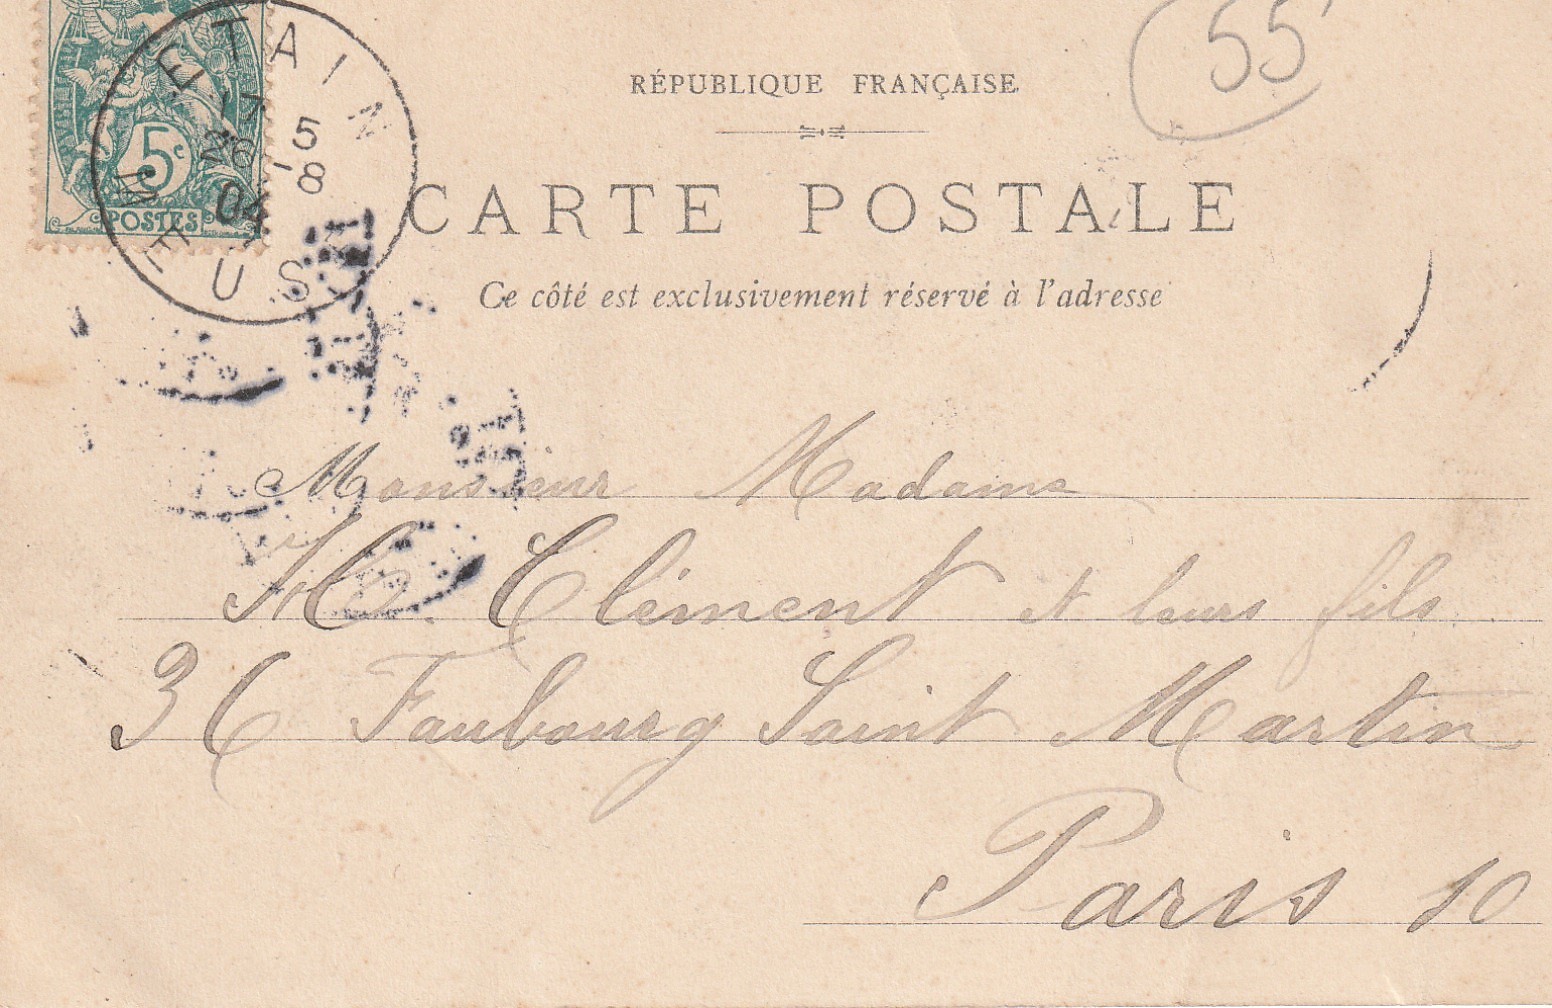 55
RÉPUBLIQUE FRANÇAISE
CARTE POSTALE
Ce côté est exclusivement réservé à l'adresse
5c
POSTES
ETAIN
5
26 -8
04
MEUSE
Monsieur Madame
H. Clément et leurs fils
36 Faubourg Saint Martin
Paris 10